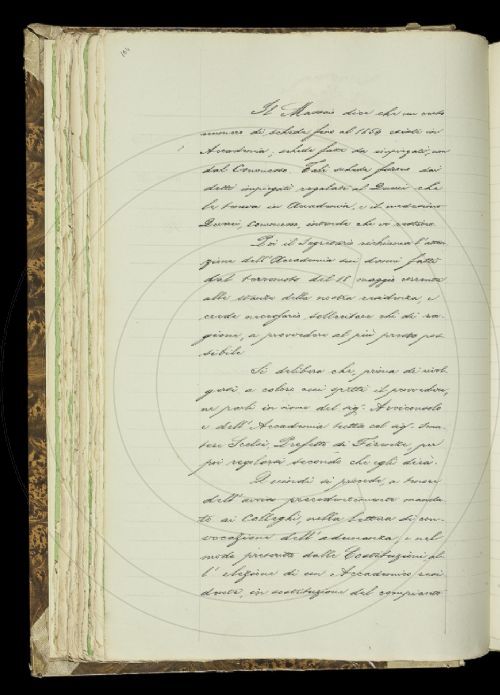 164
Il Massaio dice che un certo
numero di schede fino al 1650 esiste in
Accademia, schede fatte da impiegati, non
dal Commesso. Tali schede furono dai
detti impiegati regalati al Dursei che
le trova in Accademia, e il medesimo
Commesso, intende che vi restino.
Poi il Segretario richiama l'atten
zione dell'Accademia sui danni fatti
dal terremoto del 18 maggio corrente
alle stanze della nostra residenza, e
crede necessario sollecitare chi di ra
gione, a provvedere al più presto pos
sibile.
Si delibera che, prima di rivol
gersi, a coloro cui spetti il provvedere,
ne parli in nome del sig. Arciconsolo
e dell'Accademia tutta col sig.
Prefetto di Firenze, per
poi regolarsi secondo che egli dirà.
Quindi si procede, a tenore
dell'avviso precedentemente manda
to ai Colleghi, nella lettera di con
vocazione dell'adunanza, e nel
modo prescritto dalle Costituzioni, al
l'elezione di un Accademico resi
dente, in sostituzione del compianto